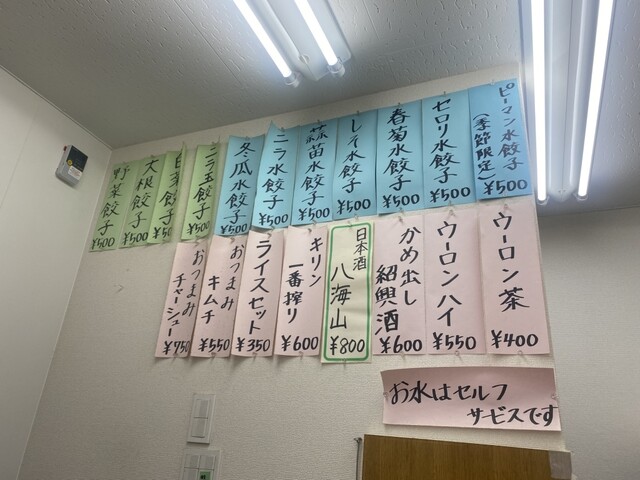 ピーマン水餃子
(季節限定)
¥500
セロリ水餃子
¥500
春菊水餃子
¥500
しそ水餃子
¥500
蒜苗水餃子
¥500
ニラ水餃子
¥500
冬瓜水餃子
¥500
ニラ玉餃子
¥500
白菜餃子
¥500
大根餃子
¥500
野菜餃子
¥500
ウーロン茶
¥400
ウーロンハイ
¥550
かめ出し
紹興酒
¥600
日本酒
八海山
¥800
キリン
一番搾り
¥600
ライスセット
¥350
おつまみ
キムチ
¥550
おつまみ
チャーシュー
¥750
お水はセルフ
サービスです